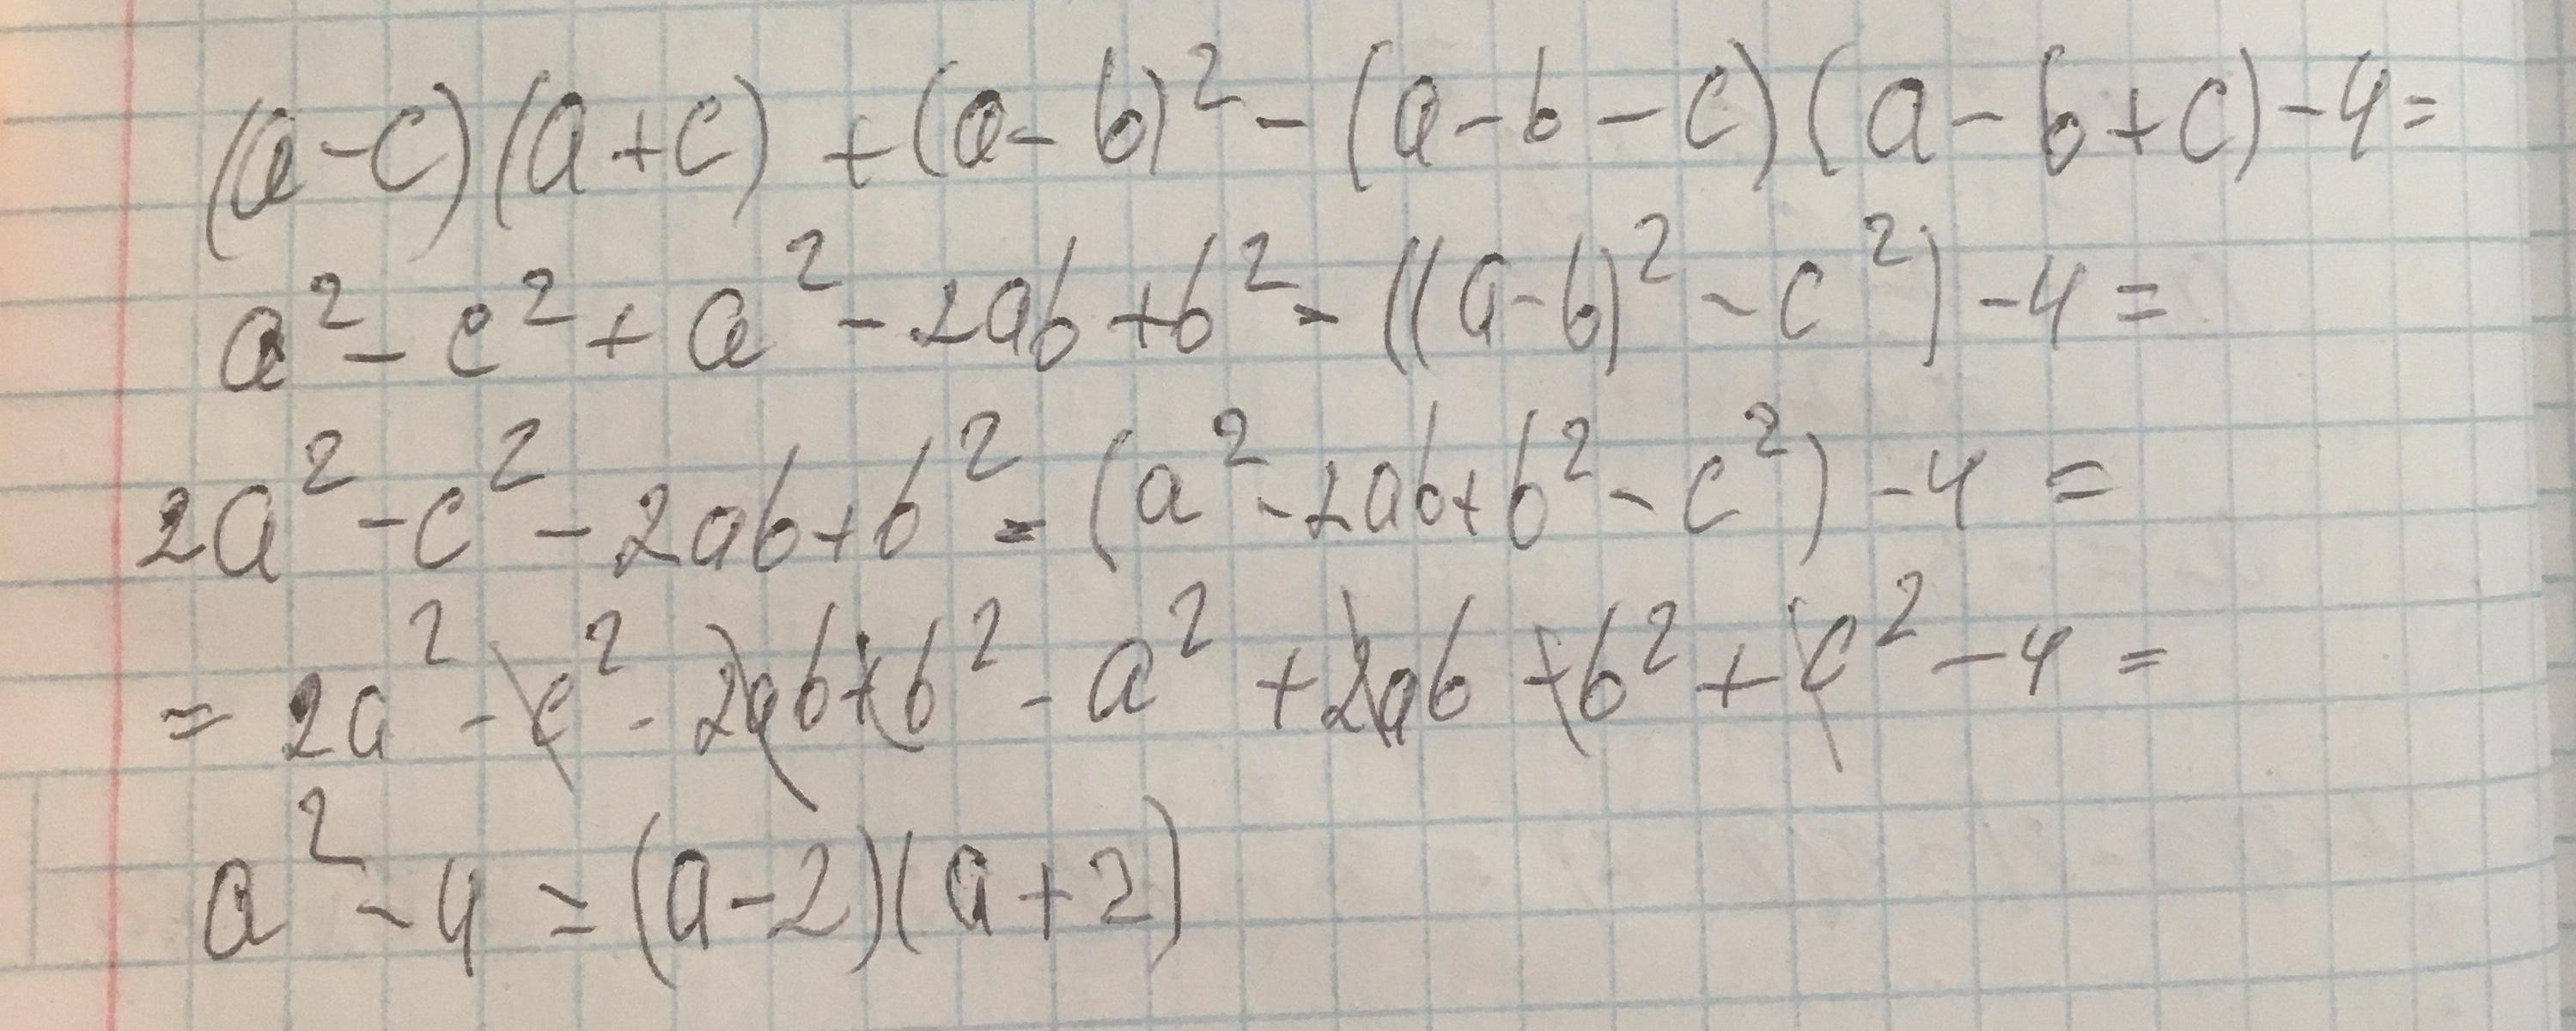 (a-c)(a+c)+(a-b)²-(a-b-c)(a-b+c)-4=
a²-c²+a²-2ab+b²-((a-b)²-c²)-4=
2a²-c²-2ab+b²-(a²-2ab+b²-c²)-4=
=2a²-c²-2ab+b²-a²+2ab-b²+c²-4=
a²-4=(a-2)(a+2)